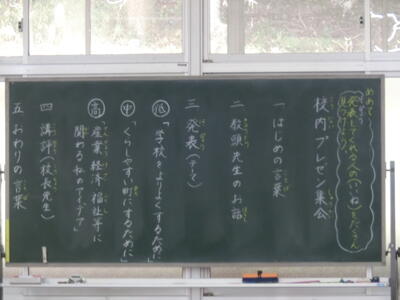 めあて
発表してくれる人の「いいね」をたくさん
見つけよう。
校内プレゼン集会
一 はじめの言葉
二 教頭先生のお話
三 発表(テーマ)
低「学校をよりよくするために」
中「くらしやすい町にするために」
高「産業、経済、福祉等に
関わる私のアイデア」
四 講評(校長先生)
五 おわりの言葉